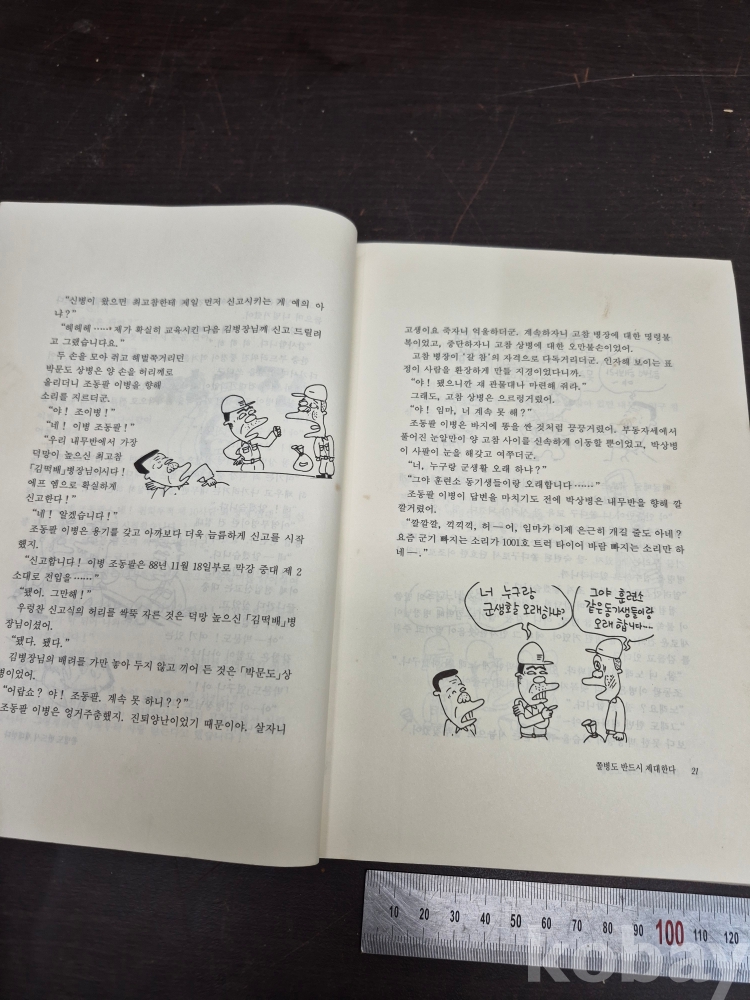 “신병이 왔으면 최고참한테 제일 먼저 신고시키는 게 예의 아
냐?”
“헤헤헤……제가 확실히 교육시킨 다음 김병장님께 신고 드릴려
고 그랬습니다요.”
두 손을 모아 쥐고 해벌쭉거리던
박문도 상병은 양 손을 허리께로
올리더니 조동팔 이병을 향해
소리를 지르더군.
“야! 조이병!”
“네! 이병 조동팔!”
“우리 내무반에서 가장
덕망이 높으신 최고참
「김떡배」병장님이시다!
에프 엠으로 확실하게
신고한다!”
“네! 알겠습니다!”
조동팔 이병은 용기를 갖고 아까보다 더욱 늠름하게 신고를 시작
했지.
“신고합니다! 이병 조동팔은 88년 11월 18일부로 막강 중대 제 2
소대로 전입을……”
“됐어. 그만해!”
우렁찬 신고식의 허리를 싹뚝 자른 것은 덕망 높으신 「김떡배」병
장님이셨어.
“됐다. 됐다.”
김병장님의 배려를 가만 놓아 두지 않고 끼어 든 것은 「박문도」상
병이었어.
“어랍쇼? 야! 조동팔, 계속 못 하니??”
조동팔 이병은 엉거주춤했지. 진퇴양난이었기 때문이야. 살자니
고생이요 죽자니 억울하더군. 계속하자니 고참 병장에 대한 명령불
복이었고, 중단하자니 고참 상병에 대한 오만불손이었어.
고참 병장이 ‘갈 참’의 자격으로 다독거리더군. 인자해 보이는 표
정이 사람을 환장하게 만들 지경이었다니까.
“야! 됐으니깐 쟤 관물대나 마련해 줘라.”
그래도, 고참 상병은 으르렁거렸어.
“야! 임마, 너 계속 못 해?”
조동팔 이병은 바지에 똥을 싼 것처럼 끙끙거렸어. 부동자세에서
풀어진 눈알만이 양 고참 사이를 신속하게 이동할 뿐이었고, 박상병
이 사팔이 눈을 해갖고 여쭈더군.
“너, 누구랑 군생활 오래 하냐?”
“그야 훈련소 동기생들이랑 오래합니다……”
조동팔 이병이 답변을 마치기도 전에 박상병은 내무반을 향해 깔
깔거렸어.
“깔깔깔, 낄낄낄, 허—어, 임마가 이제 은근히 개길 줄도 아네?
요즘 군기 빠지는 소리가 1001호 트럭 타이어 바람 빠지는 소리만 하
네—.”
너 누구랑
군생활 오래하냐?
그야 훈련소
같은동기생들이랑
오래 합니다....
쫄병도 반드시 제대한다 21
10 20 30 40 50 60 70 80 90 100 110 120
kobay